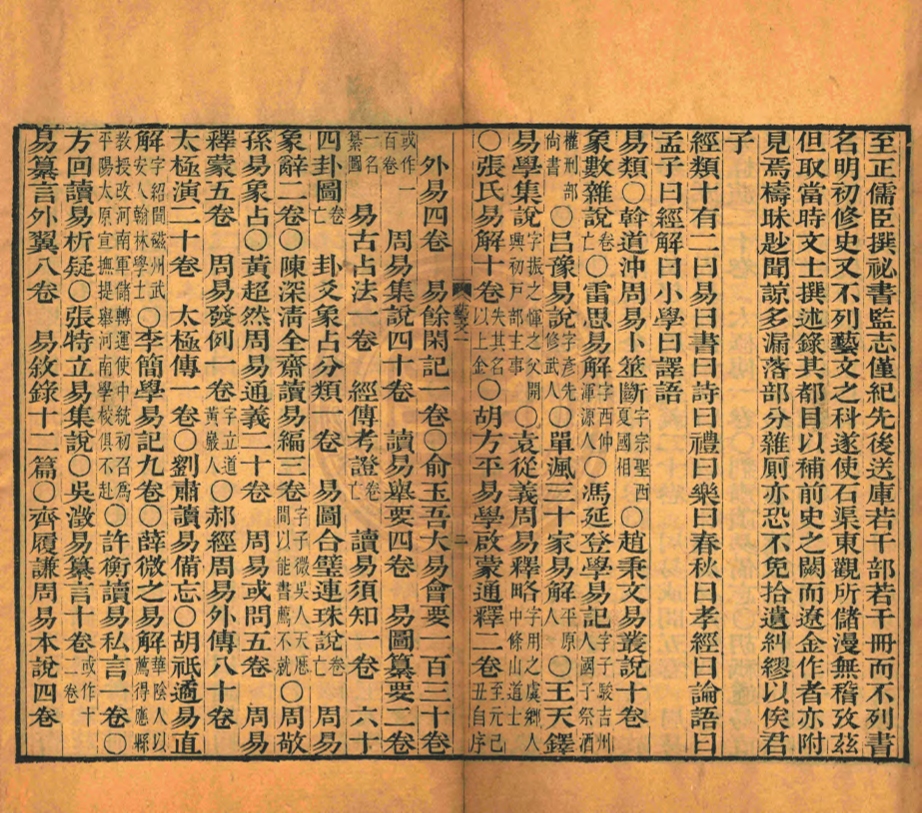 至正儒臣撰祕書監志僅紀先後送庫若干部若干冊而不列書
名明初修史又不列藝文之科遂使石渠東觀所儲漫無稽攷茲
但取當時文士撰述錄其都目以補前史之闕而遼金作者亦附
見焉檮昧尟聞諒多漏落部分雜厠亦恐不免拾遺糾繆以俟君
子
經類十有二曰易曰書曰詩曰禮曰樂曰春秋曰孝經曰論語曰
孟子曰經解曰小學曰譯語
易類〇斡道沖周易卜筮斷字宗聖西夏國相〇趙秉文易叢說十卷
象數雜說卷亡〇雷思易解字西仲渾源人〇馮延登學易記字子駿吉州人國子祭酒
權刑部尚書〇呂豫易說字彥先修武人〇單渢三十家易解平原人〇王天鐸
易學集說字振之惲之父開興初戶部主事〇袁從義周易釋略字用之虞鄉人中條山道士
〇張氏易解十卷失其名以上金〇胡方平易學啟蒙通釋二卷至元己丑自序
藝文一
二
外易四卷　易餘閑記一卷〇俞玉吾大易會要一百三十卷
或作一百卷　周易集說四十卷　讀易舉要四卷　易圖纂要二卷
一名纂圖　易古占法一卷　經傳考證卷亡　讀易須知一卷　六十
四卦圖卷亡　卦爻象占分類一卷　易圖合璧連珠說卷亡　周易
象辭二卷〇陳深清全齋讀易編三卷字子微吳人天曆間以能書薦不就〇周敬
孫易象占〇黃超然周易通義二十卷　周易或問五卷　周易
釋蒙五卷　周易發例一卷字立道黃巖人〇郝經周易外傳八十卷
太極演二十卷　太極傳一卷〇劉肅讀易備忘〇胡祗遹易直
解字紹聞磁州武安人翰林學士〇李簡學易記九卷〇薛微之易解華陰人以薦得應縣
教授改河南軍儲轉運使中統初召爲平陽太原宣撫提舉河南學校俱不赴〇許衡讀易私言一卷〇
方回讀易析疑〇張特立易集說〇吳澂易纂言十卷或作十二卷
易纂言外翼八卷　易敘錄十二篇〇齊履謙周易本說四卷